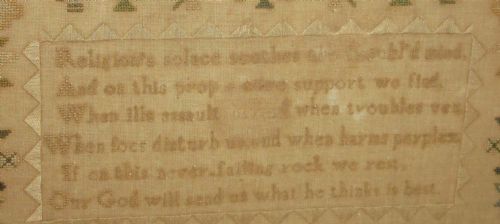 Religion's solace soothes the mind,
And on this prop a sure support we find,
When ills assault and when troubles vex,
When foes disturb us and when harms perplex,
If on this never-failing rock we rest,
Our God will send us what he thinks is best